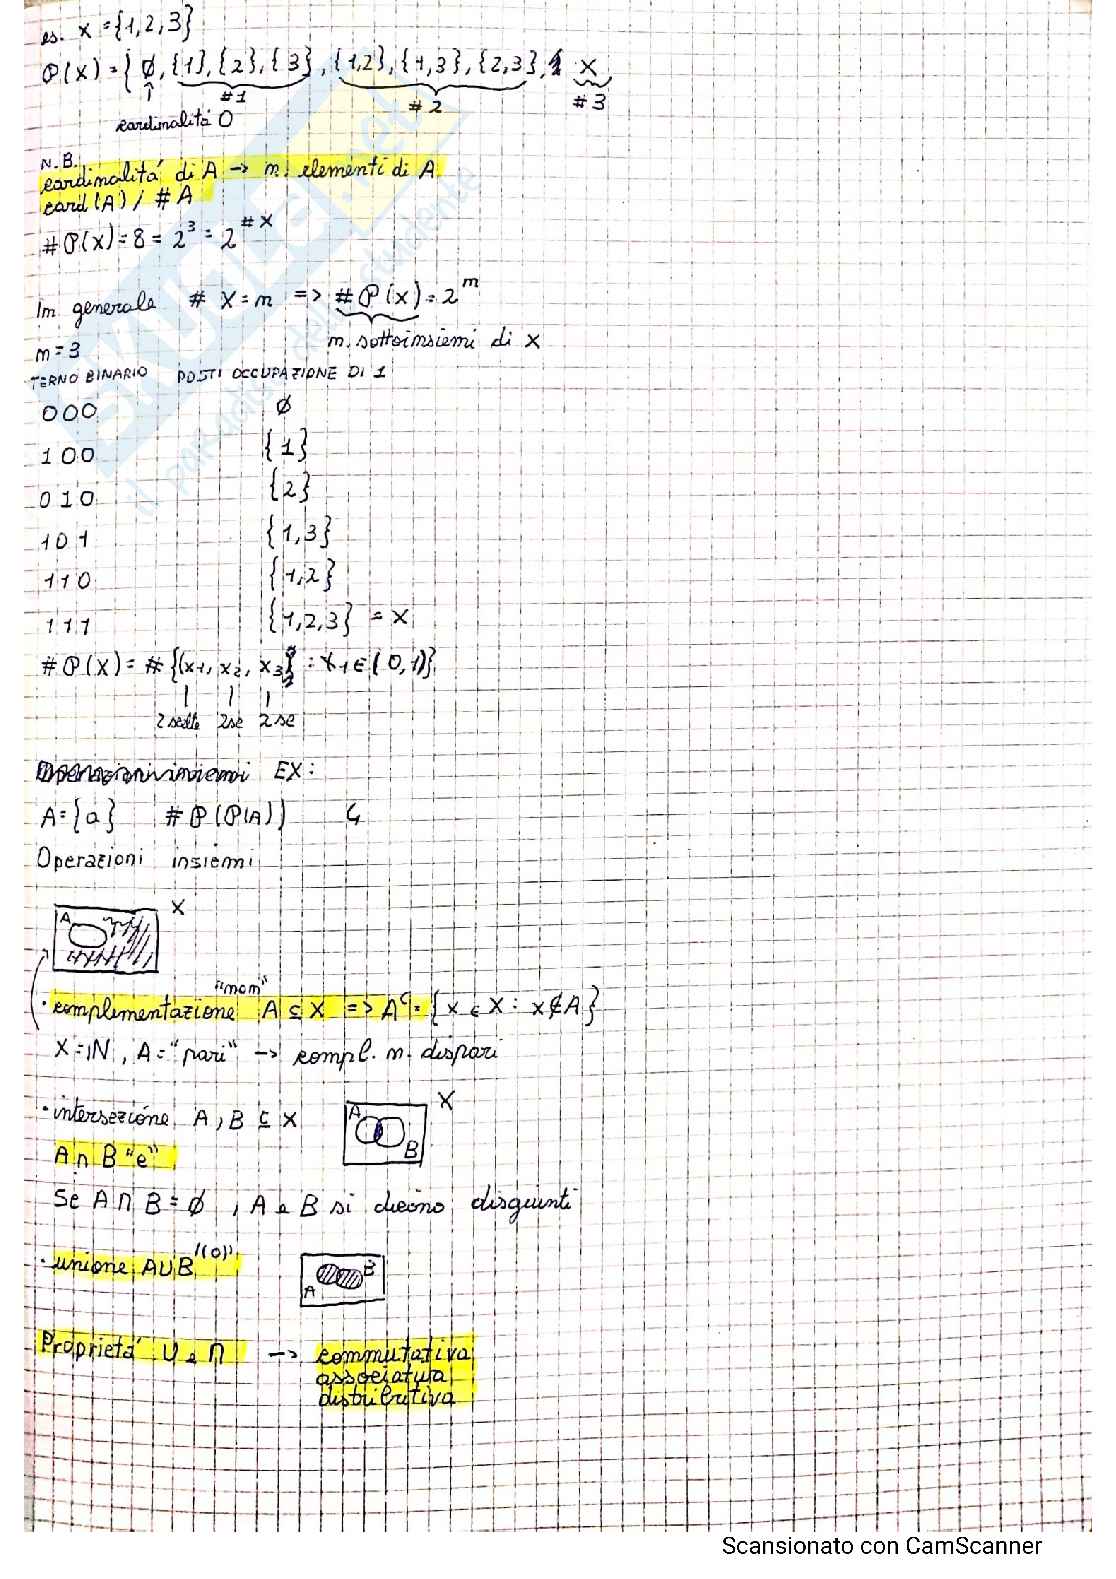 es. X = {1,2,3}
P(X) = { ∅, {1}, {2}, {3}, {1,2}, {1,3}, {2,3}, X
#1 #2 #3
cardinalitá 0
N.B.
cardinalitá di A -> n. elementi di A
card(A) / # A
# P(X) = 8 = 2³ = 2^#X
In generale # X = n => # P(X) = 2^n
n. sottoinsiemi di X
n = 3
TERNO BINARIO POSTI OCCUPAZIONE DI 1
000 ∅
100 {1}
010 {2}
101 {1,3}
110 {1,2}
111 {1,2,3} = X
# P(X) = # {(x1, x2, x3) : x1 ∈ (0,1)}
2 scelte 2 sc 2 sc
EX:
A = {a} # P(P(A)) 4
Operazioni insiemi
A X
"non"
· complimentazione A ⊆ X => Aᶜ = {x ∈ X : x ∉ A}
X = IN, A = "pari" -> compl. n. dispari
· intersezione A, B ⊆ X
A B X
A ∩ B "e"
Se A ∩ B = ∅, A e B si dicono disgiunti
· unione A ∪ B "(o)"
A B
Proprietá ∪ e ∩ -> commutativa
associativa
distributiva
Scansionato con CamScanner
SKUOLA.net
il paradiso dello studente